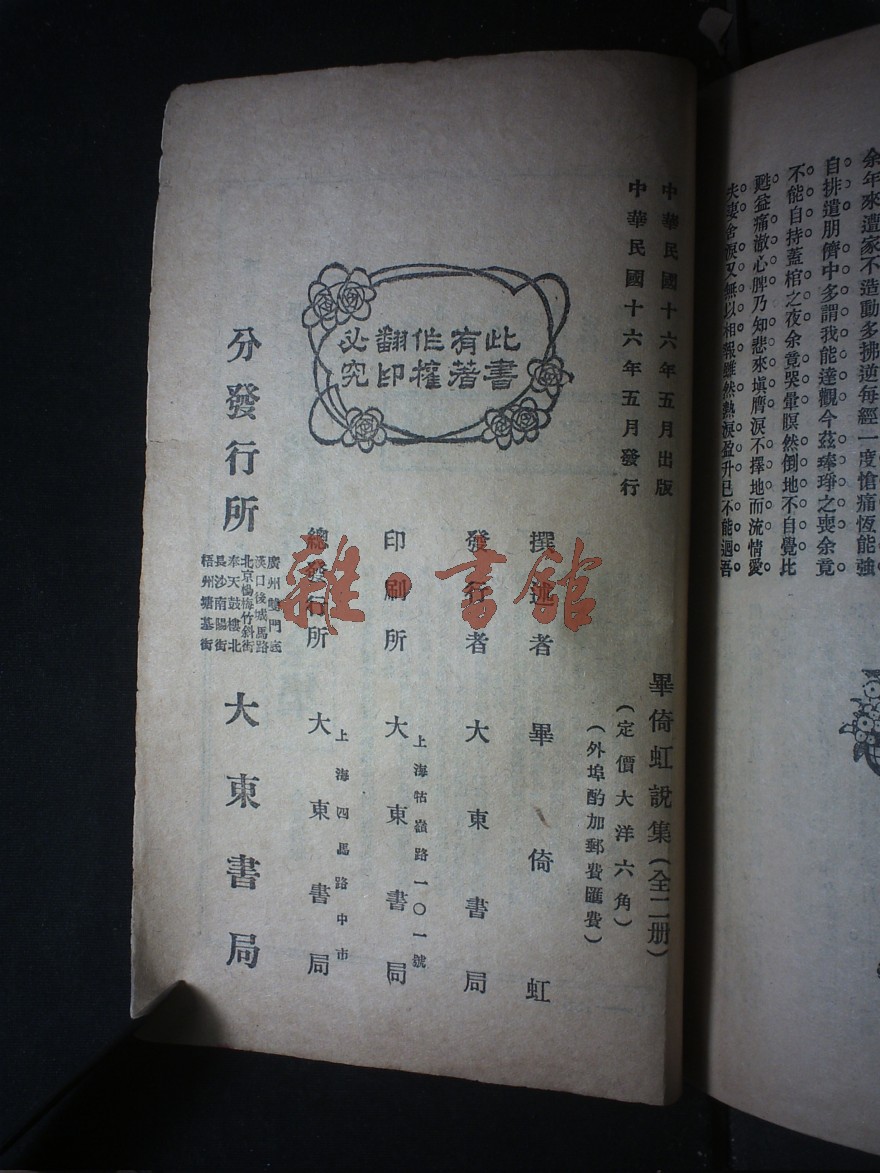 余年來遭家不造動多拂逆每經一度愴痛恆能強
自排遣朋儕中多謂我能達觀今茲琫琤之喪余竟
不能自持蓋棺之夜余竟哭暈瞑然倒地不自覺比
甦益痛澈心脾乃知悲來填膺淚不擇地而流情愛
夫妻舍淚又無以相報雖然熱淚盈升已不能迴吾
中華民國十六年五月出版
中華民國十六年五月發行
畢倚虹說集(全二册)
(定價大洋六角)
(外埠酌加郵費匯費)
此書
有著
作權
翻印
必究
撰述者 畢倚虹
發行者 大東書局
印刷所 上海牯嶺路一〇一號 大東書局
總發行所 上海四馬路中市 大東書局
分發行所
廣州雙門底
漢口後城馬路
北京楊梅竹斜街
奉天鼓樓北
長沙南陽街
梧州塘基街
大東書局
雜·書館